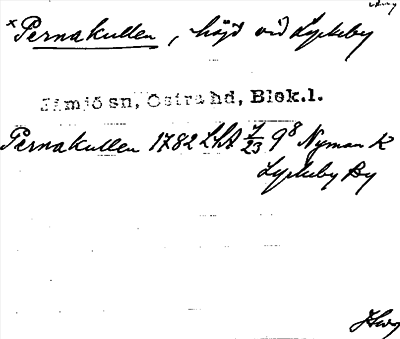 ×Pernakullen, höjd vid Lyckeby
Jämjö sn, Östra hd, Blek.l.
Pernakullen 1782 Lht 7/23 9⁸ Nyman K
Lyckeby By